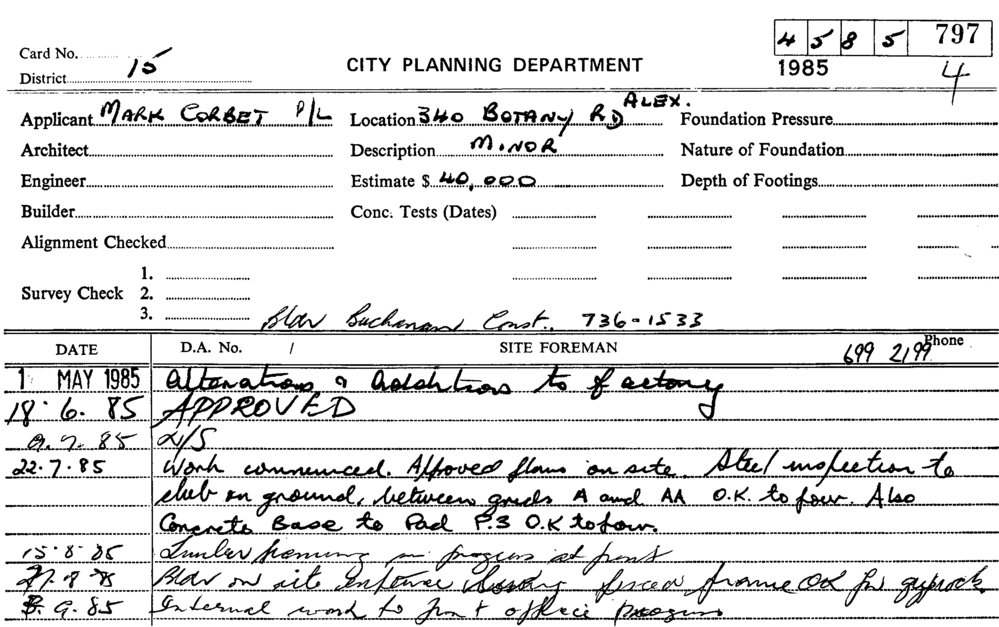 4 5 8 5 797
Card No.
District 15
CITY PLANNING DEPARTMENT
1985
4
Applicant MARK CORBET P/L
Location 340 BOTANY RD ALEX.
Foundation Pressure
Architect
Description MINOR
Nature of Foundation
Engineer
Estimate $ 40,000
Depth of Footings
Builder
Conc. Tests (Dates)
Alignment Checked
Survey Check
1.
2.
3.
Bldr Buchanan Const. 736-1533
DATE D.A. No. / SITE FOREMAN Phone 699 2199
1 MAY 1985 Alterations & Additions to factory
18.6.85 APPROVED
9.7.85
22.7.85 Work commenced. Approved plans on site. Steel inspection to
slab on ground, between grids A and AA O.K. to pour. Also
Concrete Base to Pad P.3 O.K to pour.
15.8.85 Timber framing in progress at front
27.8.85 Bldr on site frame OK for gyprock
3.9.85 Internal work to front office progress